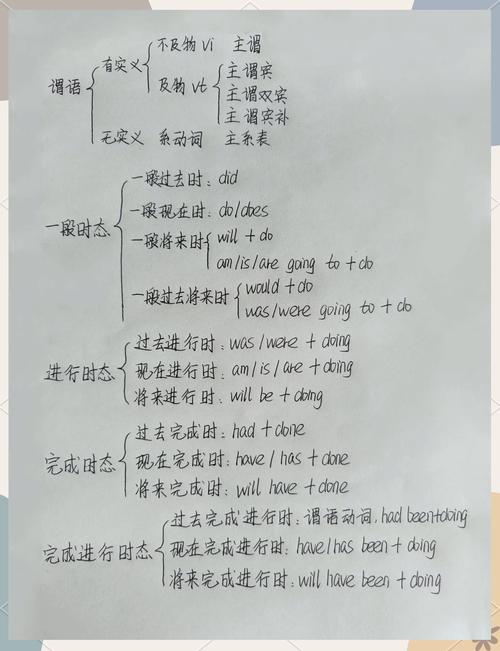 不及物 vi 主谓
有实义
主谓宾
及物 vt
主谓双宾
谓语
主谓宾补
无实义 系动词 主系表
一般过去时: did
一般现在时: do/does
一般时态
一般将来时 will + do
am/is/are going to + do
一般过去将来时 would + do
was/were going to + do
过去进行时: was/were + doing
进行时态
现在进行时: am/is/are + doing
将来进行时: will be + doing
过去完成时: had + done
完成时态
现在完成时: have/has + done
将来完成时: will have + done
过去完成进行时: 谓语动词, had been+doing
完成进行时态
现在完成进行时: have/has been + doing
将来完成进行时: will have been + doing